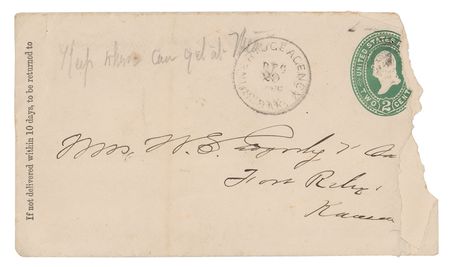 If not delivered within 10 days, to be returned to
Keep where can get at
AGENCY
DEC
20
UNITED STATES
TWO 2 CENT
Mrs. W. E.
Fort Riley
Kansas